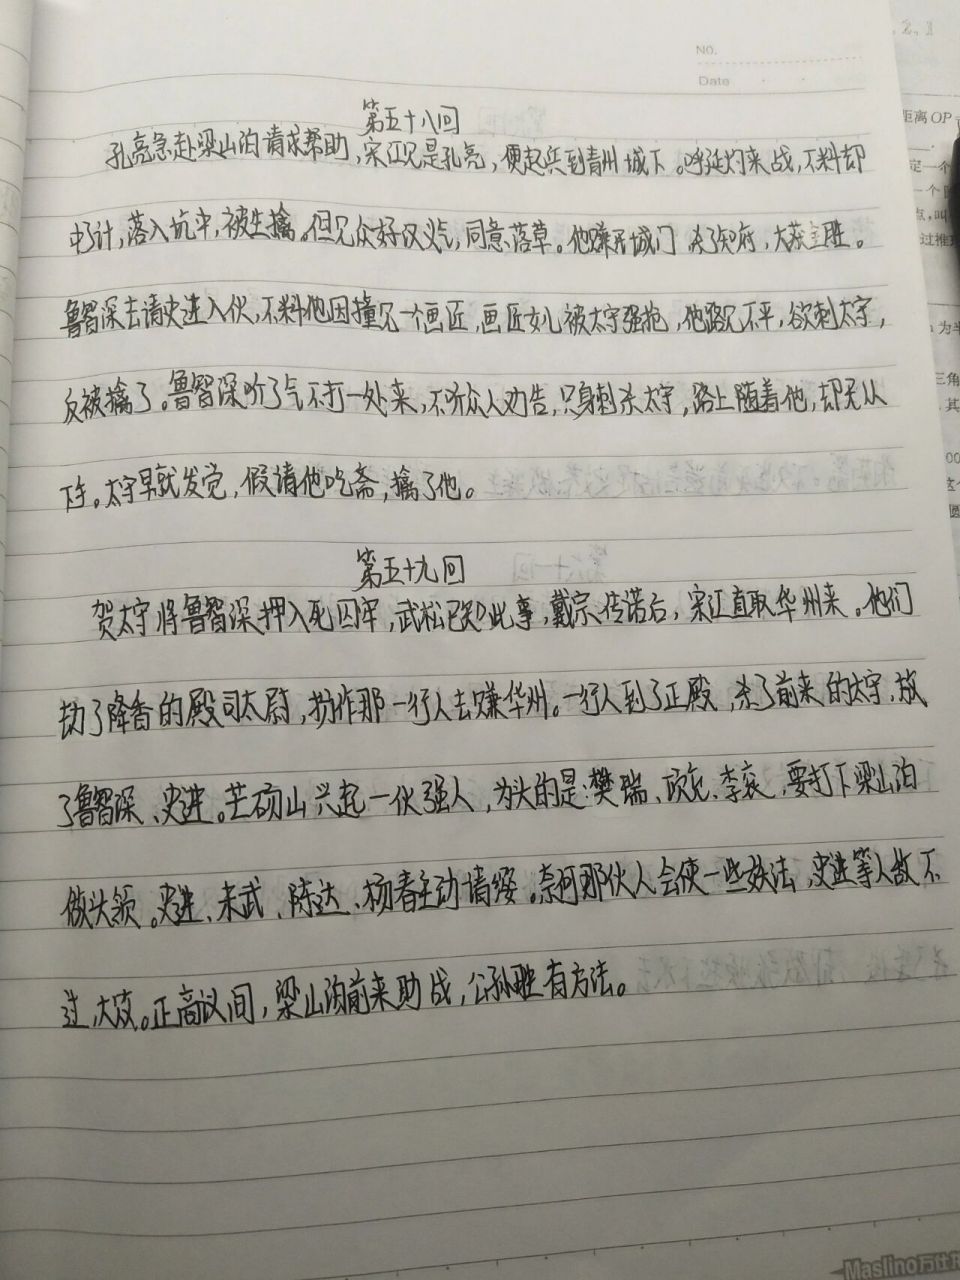 2、1
No.
Date
距离OP
定一个
一个
点,叫
过推
为半
三角
其
00
这个
圆
第五十八回
孔亮急赴梁山泊请求帮助,宋江见是孔亮,便起兵到青州城下。呼延灼来战,不料却
中了计,落入坑中,被生擒。但见众好汉义气,同意落草。他赚开城门,杀了知府,大获全胜。
鲁智深去请史进入伙,不料他因撞见一个画匠,画匠女儿被太守强抢,他路见不平,欲刺太守,
反被擒了。鲁智深听了气不打一处来,不听众人劝告,只身刺杀太守,路上随着他,却无从
下手。太守早就发觉,假请他吃斋,擒了他。
第五十九回
贺太守将鲁智深押入死囚牢,武松已知此事,戴宗传诺后,宋江直取华州来。他们
劫了降香的殿司太尉,扮作那一行人去赚华州。一行人到了正殿,杀了前来的太守,放
了鲁智深、史进。芒砀山兴起一伙强人,为头的是:樊瑞、项充、李衮,要打下梁山泊
做头领。史进、朱武、陈达、杨春主动请缨。奈何那伙人会使一些妖法,史进等人敌不
过,大败。正商议间,梁山泊前来助战,公孙胜有方法。
Maslino万仕